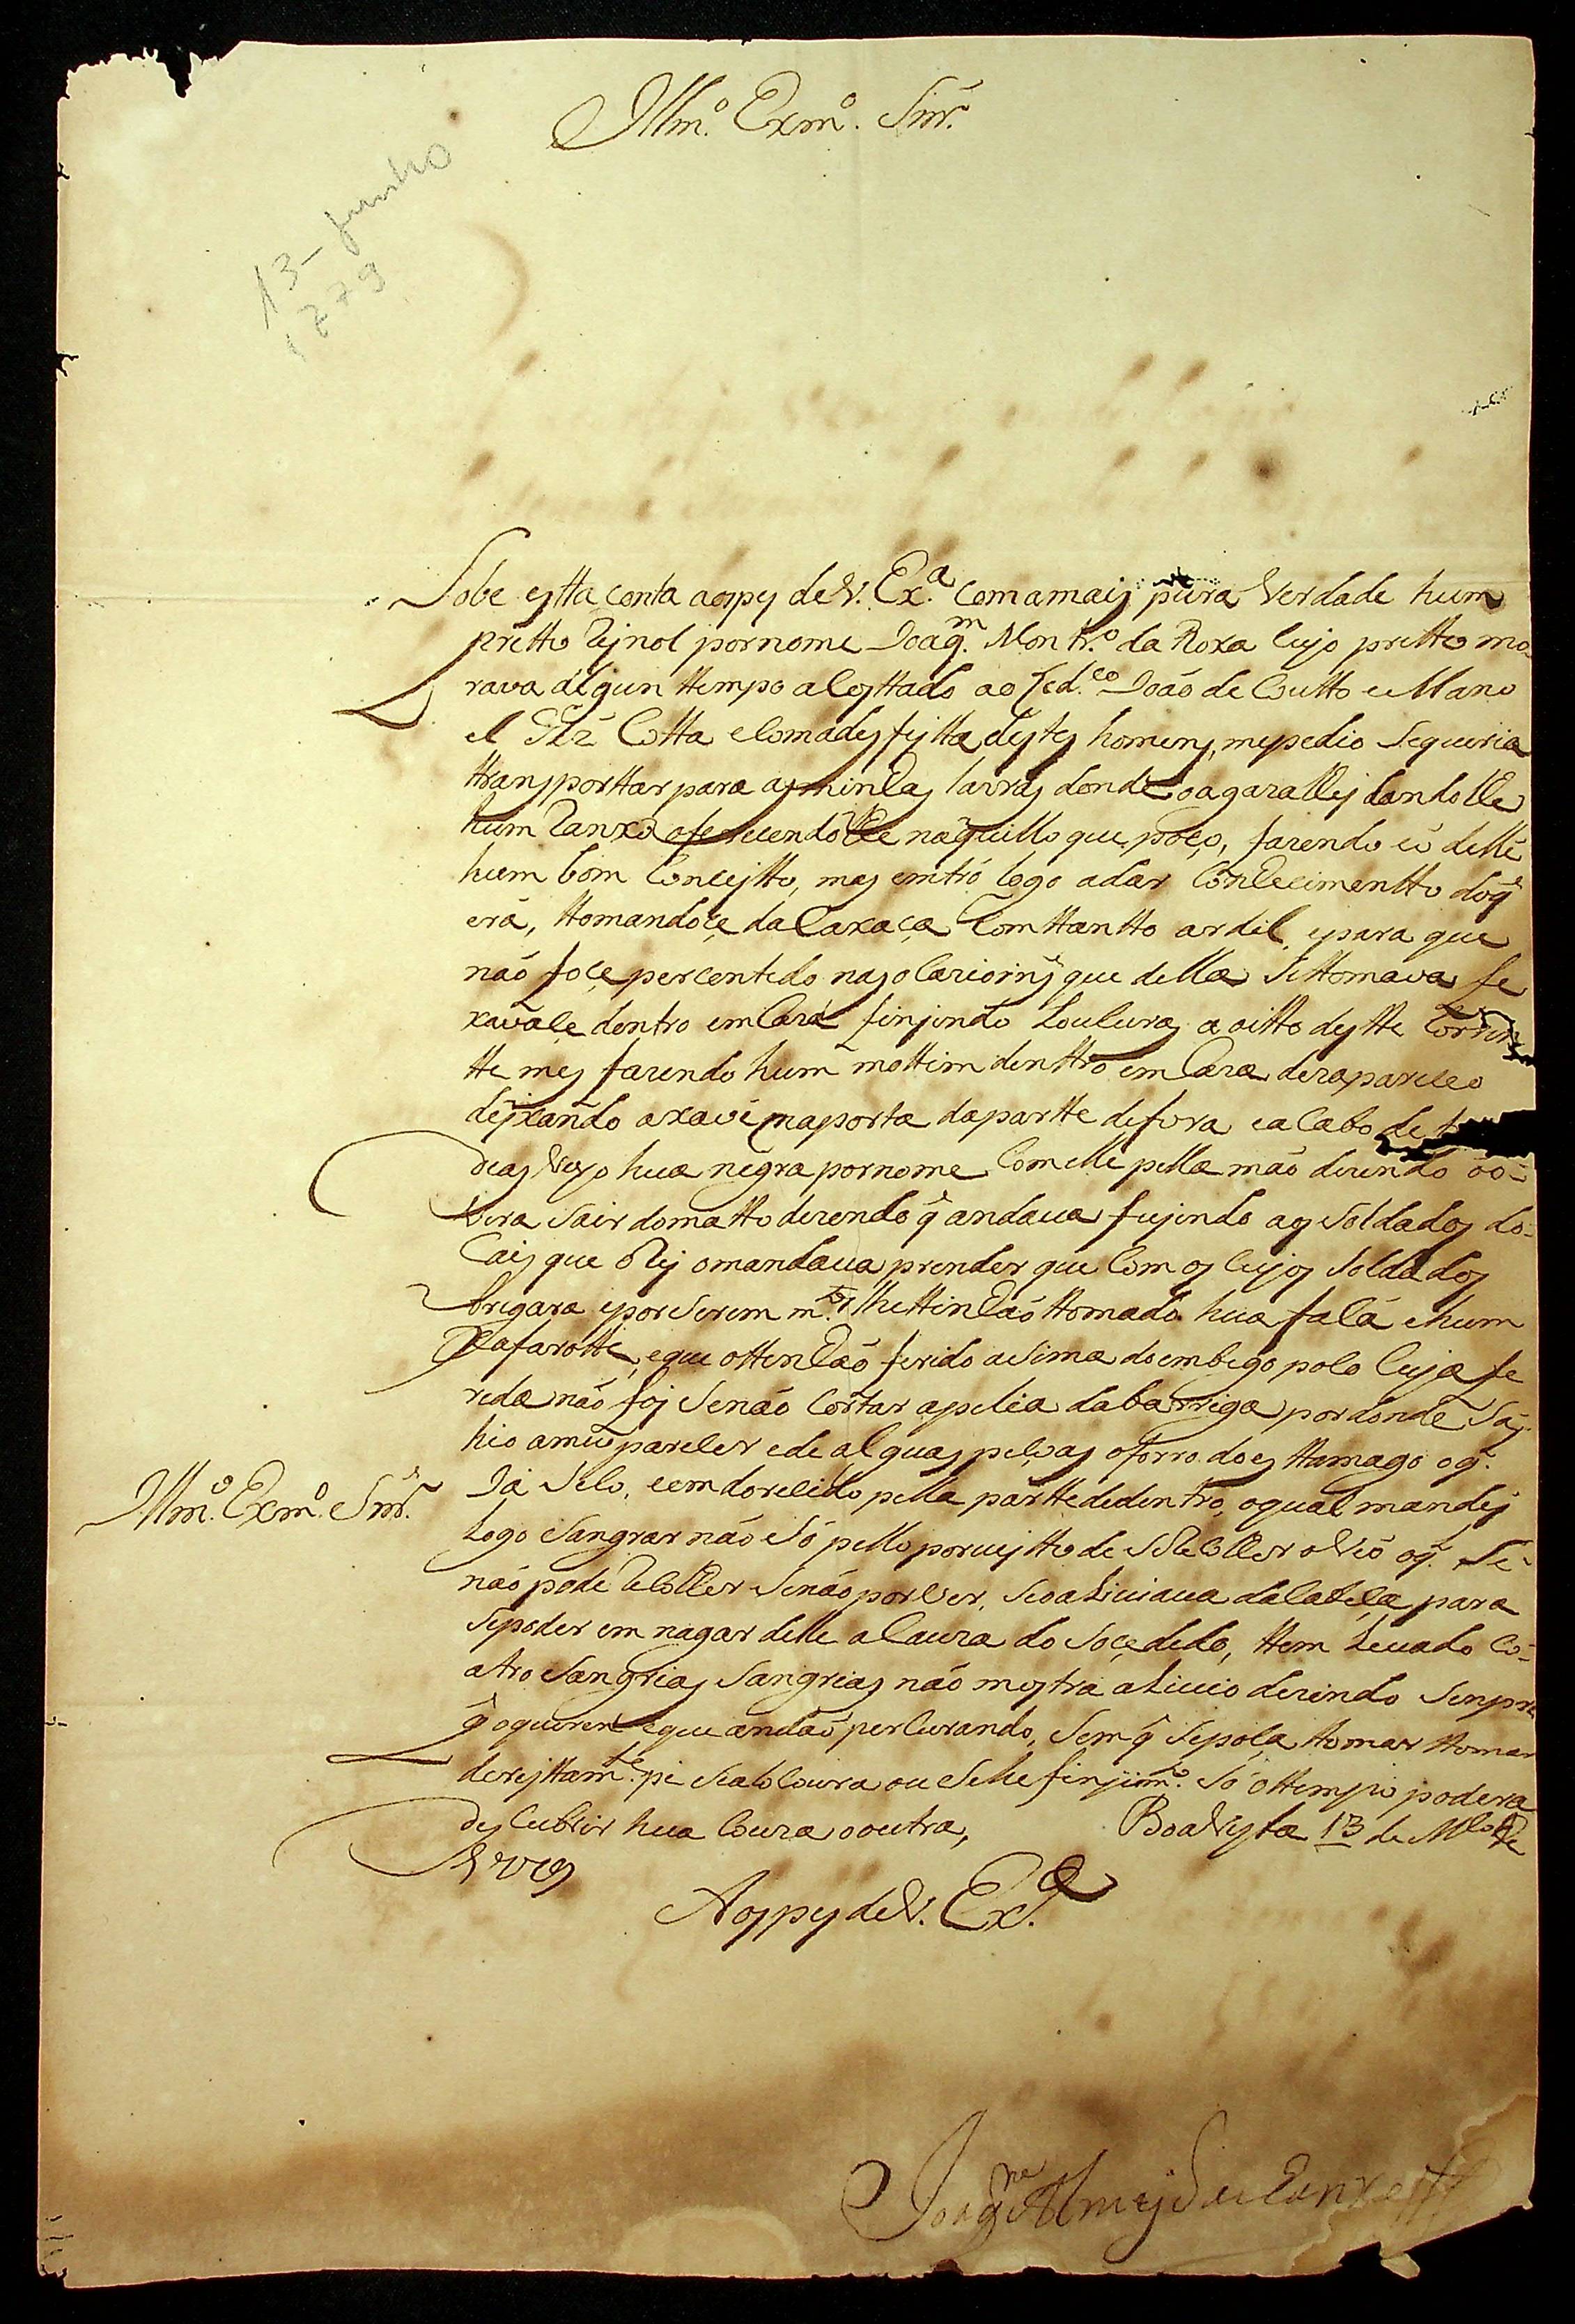 Illm.º Exmº. Snr.
13 - junho
1779
Sobe estta conta aos pes de V. Ex.ª com a mais pura verdade hum
pretto Rejnol por nome Joaq.m Montr.º da Roxa cujo pretto mo
rava algun ttempo acosttado ao João de Coutto e Mano
el Frz Cotta e com a desfejtta destes homens, me pedio se queria
ttransporttar para as minhas lavras donde o agazalhej dandolhe
hum Ranxo oferecendolhe naquillo que poço, fazendo eu delle
hum bom Concejtto, mas emtrô logo a dar Conhecimentto do q̃
erá, ttomandoçe da Caxaça Com ttantto ardil, e para que
não foçe percentido nas ocazioins que della se ttomava fe
xavaçe dentro em Caza finjindo Louluras a oitto destte Corren
tte mes fazendo hum mottim denttro em Caza dezapareceo
dejxando a xave na porta da partte de fora e a Cabo de
dias vejo hua negra por nome Com elle pella mão dizendo o o-
vira sair do matto dizendo q̃ andava fujindo aos Soldados do
Cais que o Rej o mandava prender que Com os cujos Soldados
brigara e por serem m.tos lhe ttinhaõ ttomado hua falá e hum
xafarotte, e que o ttenhaõ ferido a sima do embigo polo cuja fe
rida não foj senão Cortar a pelia da barriga por donde Saj
hio a meu pareser e de alguas peçoas o forro do esttamago o q̃.
Illm.º Exmº. Snr.
Já seco, e emdorecido pella partte de dentro, o qual mandej
Logo Sangrar não só pello porvejtto de se Recolher o veo o q̃. Se
não pode Recolher senão por ver, se o aliviava da Cabeça para
se poder em nagar delle a Cauza do Soçedido, ttem Levado Co-
atro Sangrias Sangrias não mostra alivio dizindo senpre
q̃ o querem e que andaõ percurando, sem q̃ se poça ttomar ttomar
derejttam.te pé se a loucura ou se he finjim.º só o ttempo podera
des Cubrir hua Couza o outra, Boa Vista 13 de de
1779
Aos pes de V. Ex.ª
Joaq.m Almejda